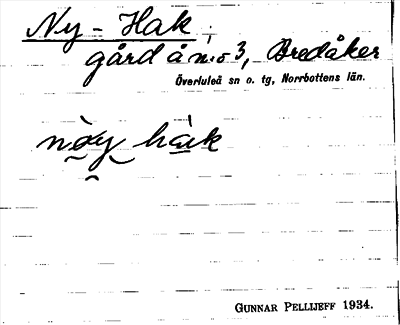 Ny-Hak,
gård å n:o 3, Bredåker
Överluleå sn o. tg, Norrbottens län.
nòy hàk
GUNNAR PELLIJEFF 1934.